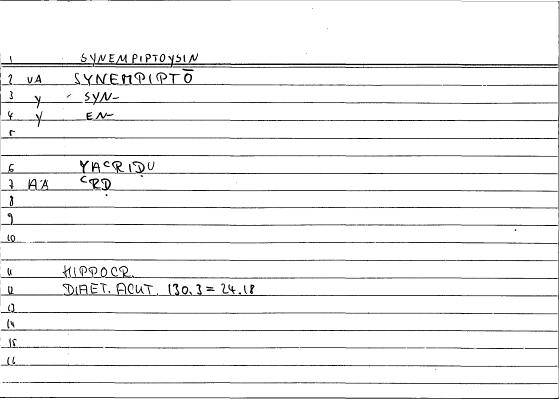 1 SYNEMPIPTOYSIN
2 VA SYNEMPIPTŌ
3 Y SYN-
4 Y EN-
5
6 YAʿRIḌU
7 AA ʿRḌ
8
9
10
11 HIPPOCR.
12 DIAET. ACUT. 130.3 = 24.18
13
14
15
16